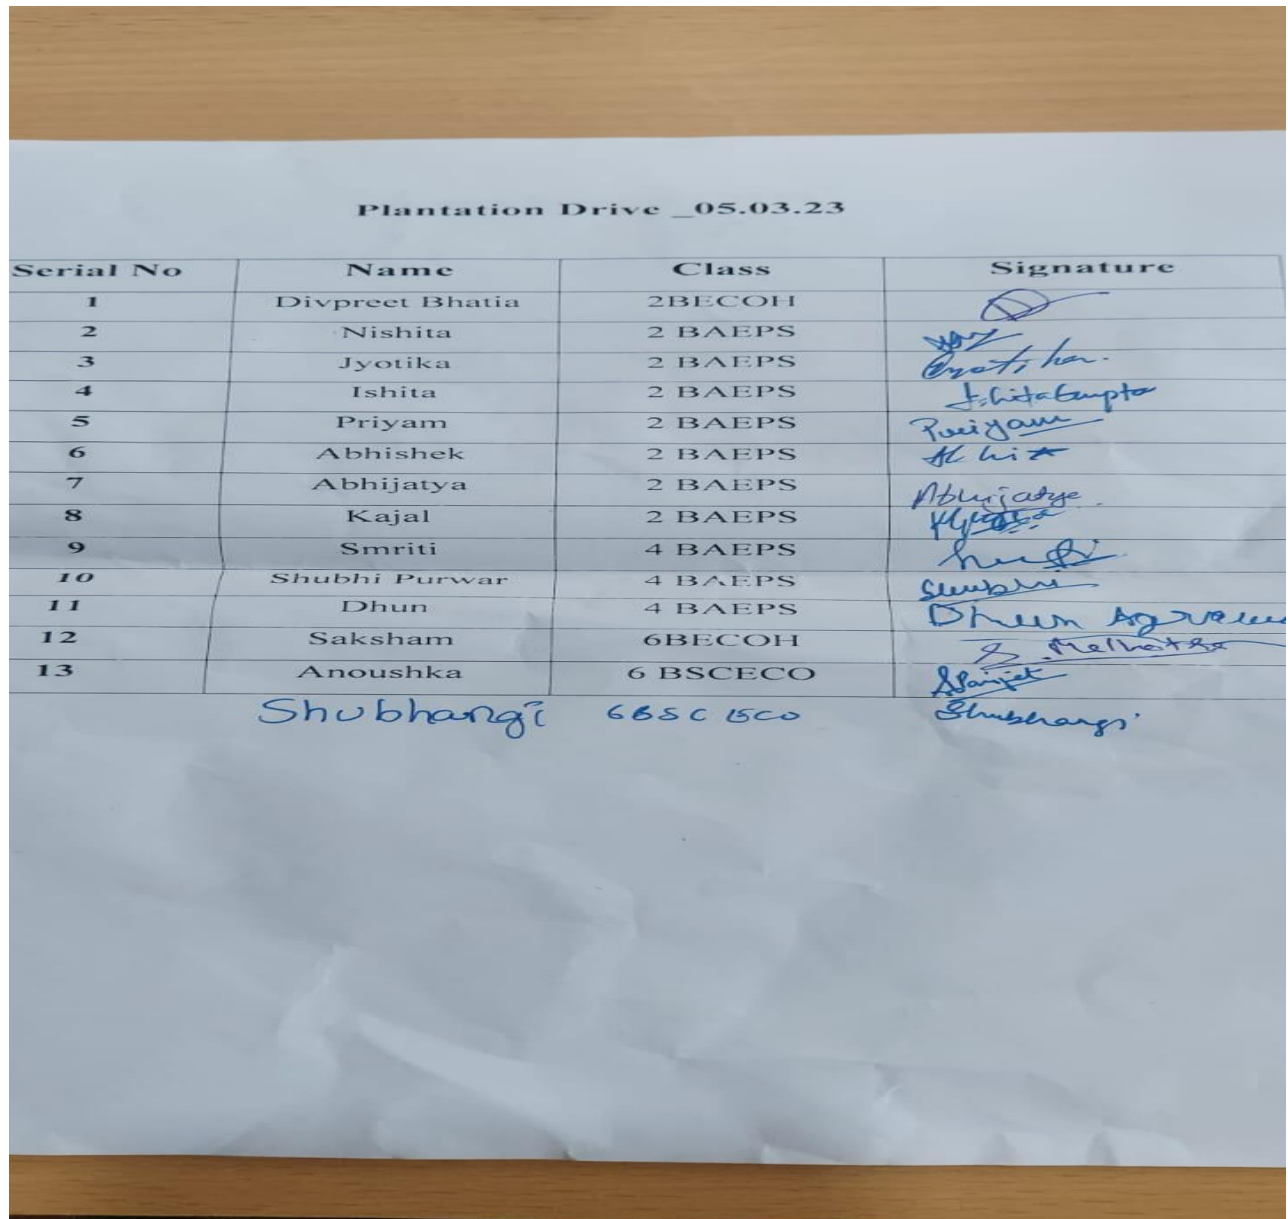 Plantation Drive _05.03.23
Serial No Name Class Signature
1 Divpreet Bhatia 2BECOH
2 Nishita 2 BAEPS
3 Jyotika 2 BAEPS Jyotika.
4 Ishita 2 BAEPS Ishita Gupta
5 Priyam 2 BAEPS Priyam
6 Abhishek 2 BAEPS
7 Abhijatya 2 BAEPS Abhijatya
8 Kajal 2 BAEPS
9 Smriti 4 BAEPS
10 Shubhi Purwar 4 BAEPS Shubhi
11 Dhun 4 BAEPS Dhun
12 Saksham 6BECOH S. Malhotra
13 Anoushka 6 BSCECO
Shubhangi 6BSC ECO Shubhangi